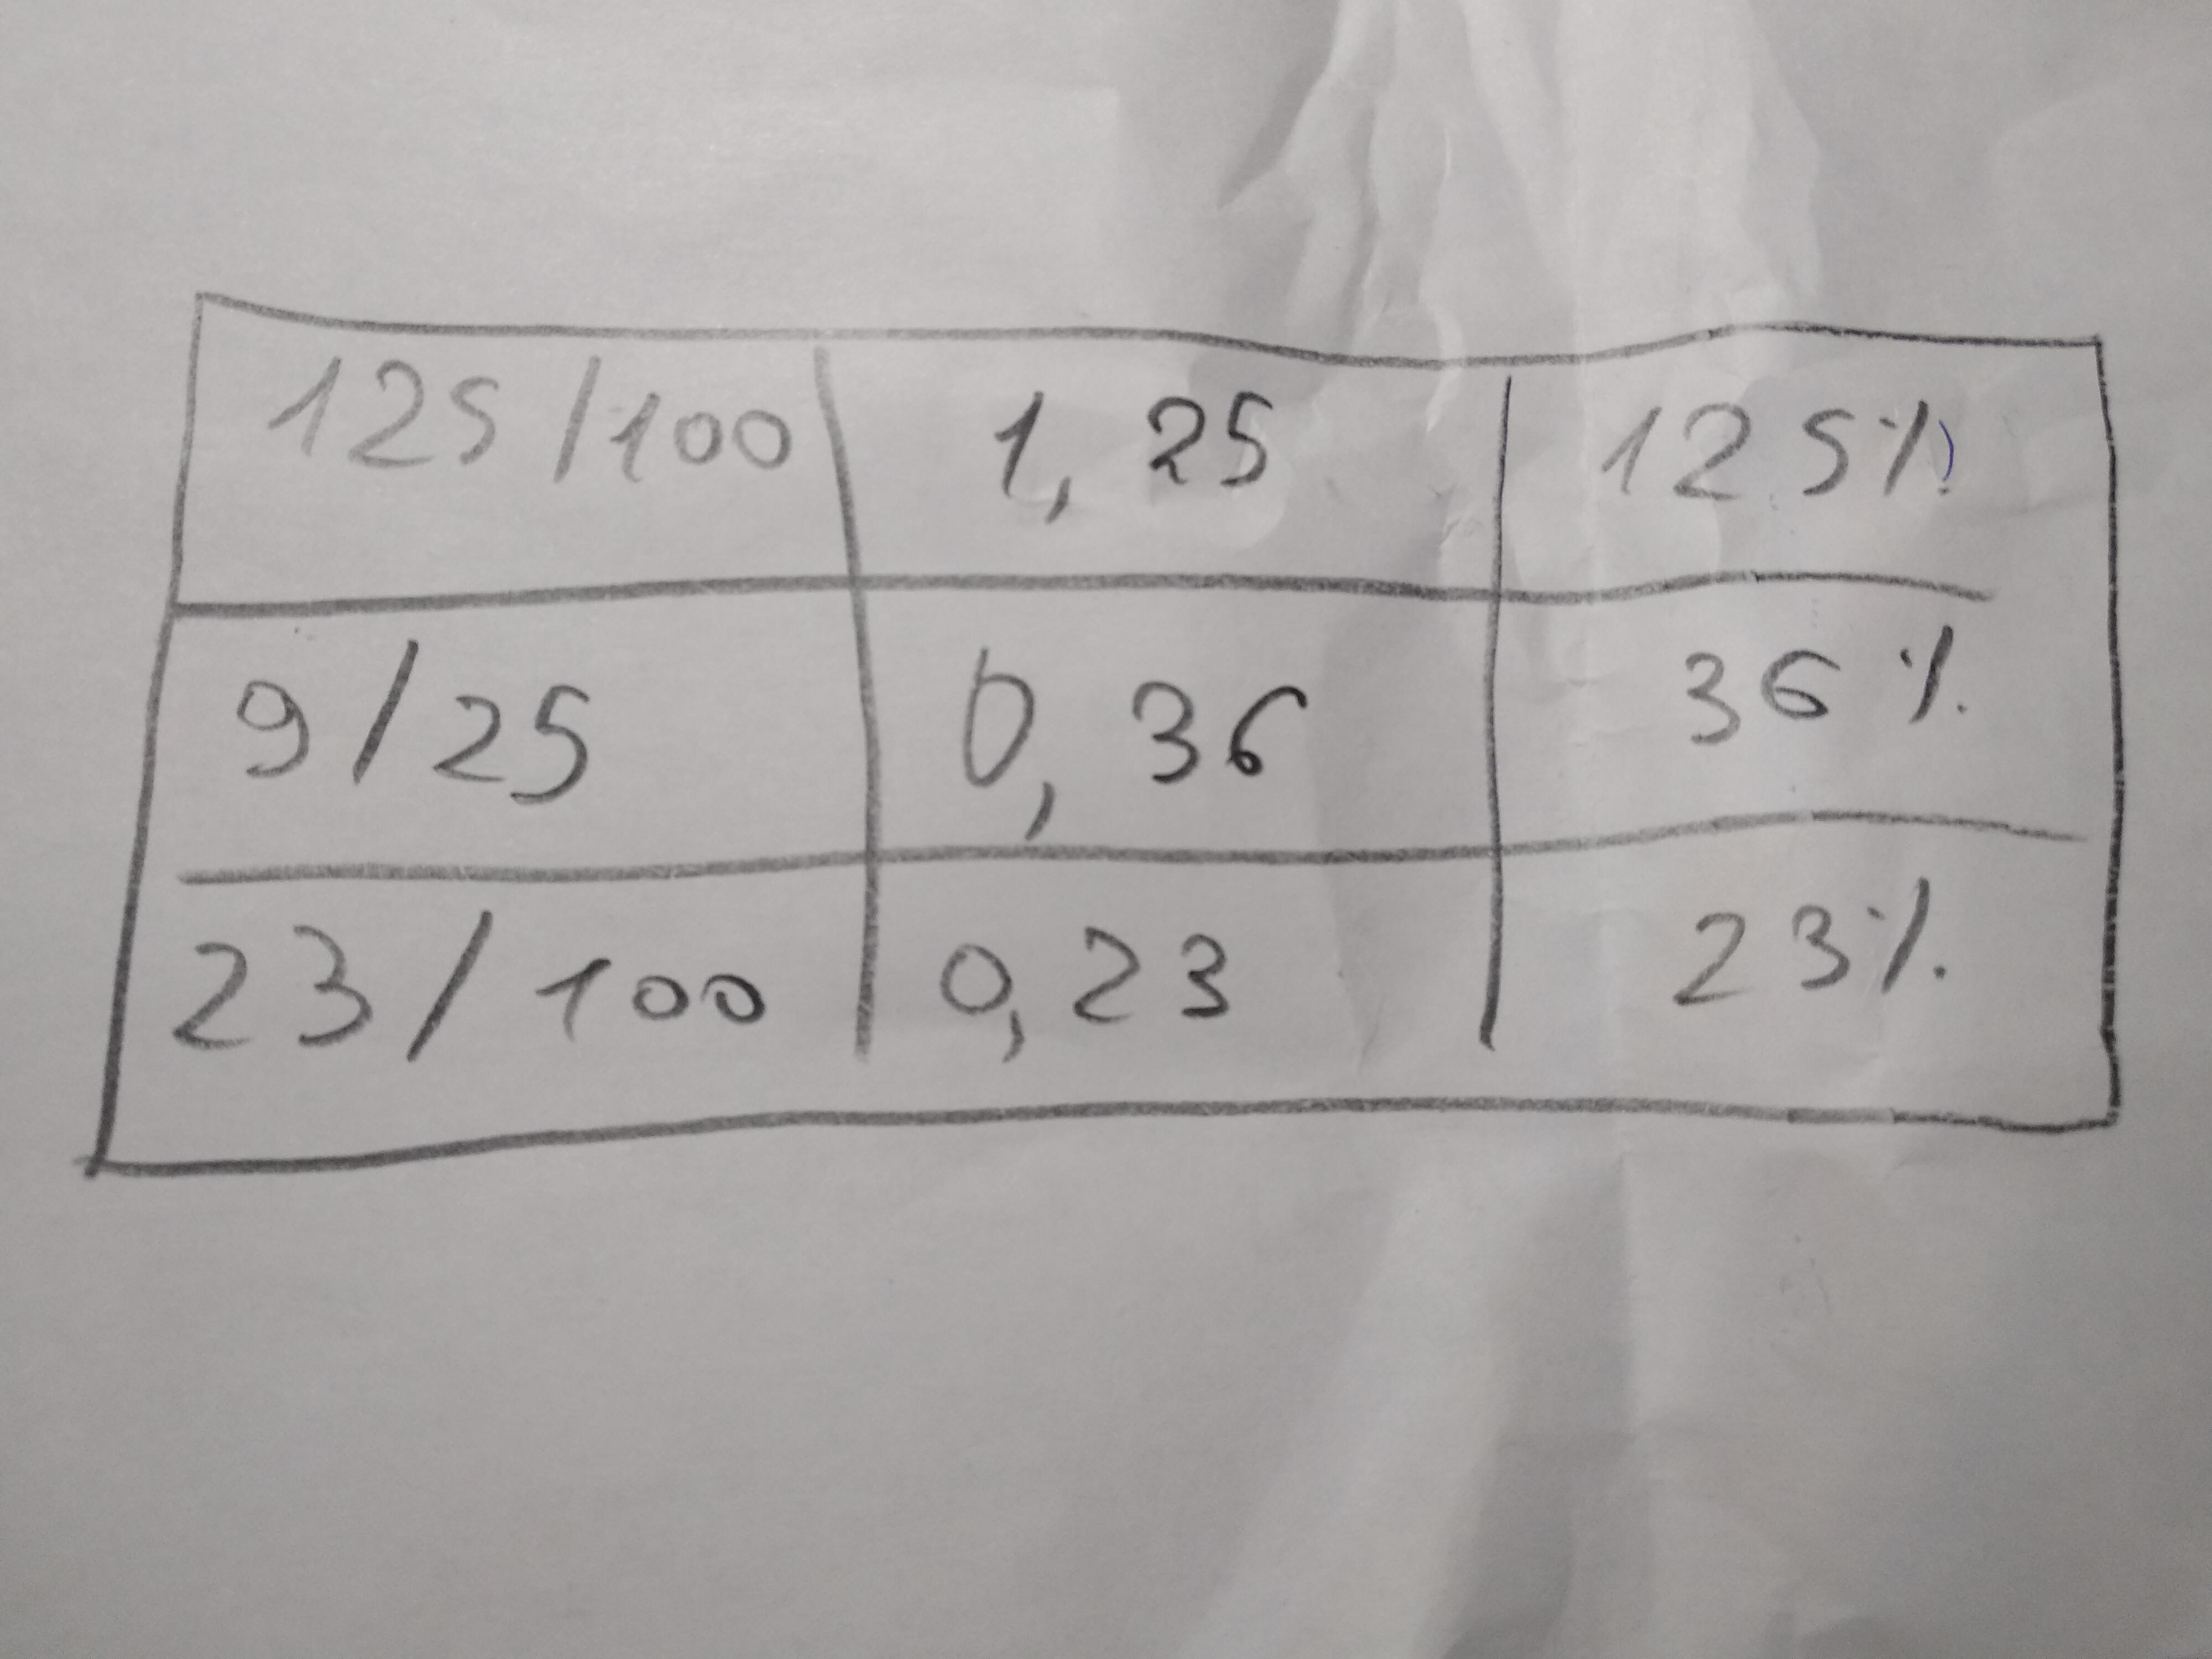 125/100 1,25 125%
9/25 0,36 36%
23/100 0,23 23%